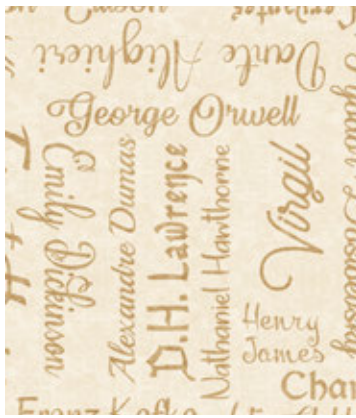 Cervantes
Dante Alighieri
George Orwell
Emily Dickinson
Alexandre Dumas
D.H. Lawrence
Nathaniel Hawthorne
Virgil
Henry
James
Fyodor Dostoevsky
Char
Franz Kafka